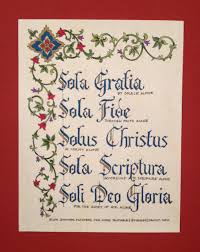 Sola Gratia
BY GRACE ALONE
Sola Fide
THROUGH FAITH ALONE
Solus Christus
IN CHRIST ALONE
Sola Scriptura
SCRIPTURE ALONE
Soli Deo Gloria
FOR THE GLORY OF GOD ALONE